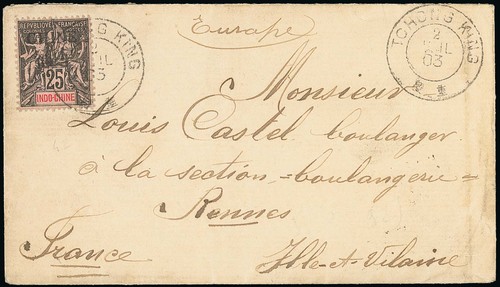 Europe
RÉPUBLIQUE FRANÇAISE
25
INDO-CHINE
TCHONG KING
2
JUIL
03
Monsieur
Louis Castel boulanger
à la section =boulangerie=
Rennes
France Ille-et-Vilaine